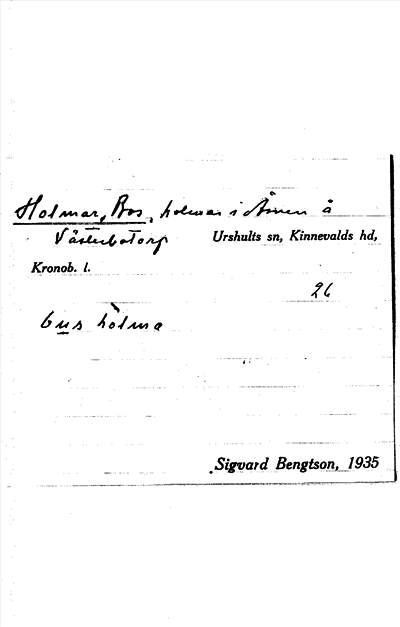 Holmar, Bos, holmar i Åsnen å
Västerbotorp Urshults sn, Kinnevalds hd,
Kronob. l.
26
bus holma
Sigvard Bengtson, 1935